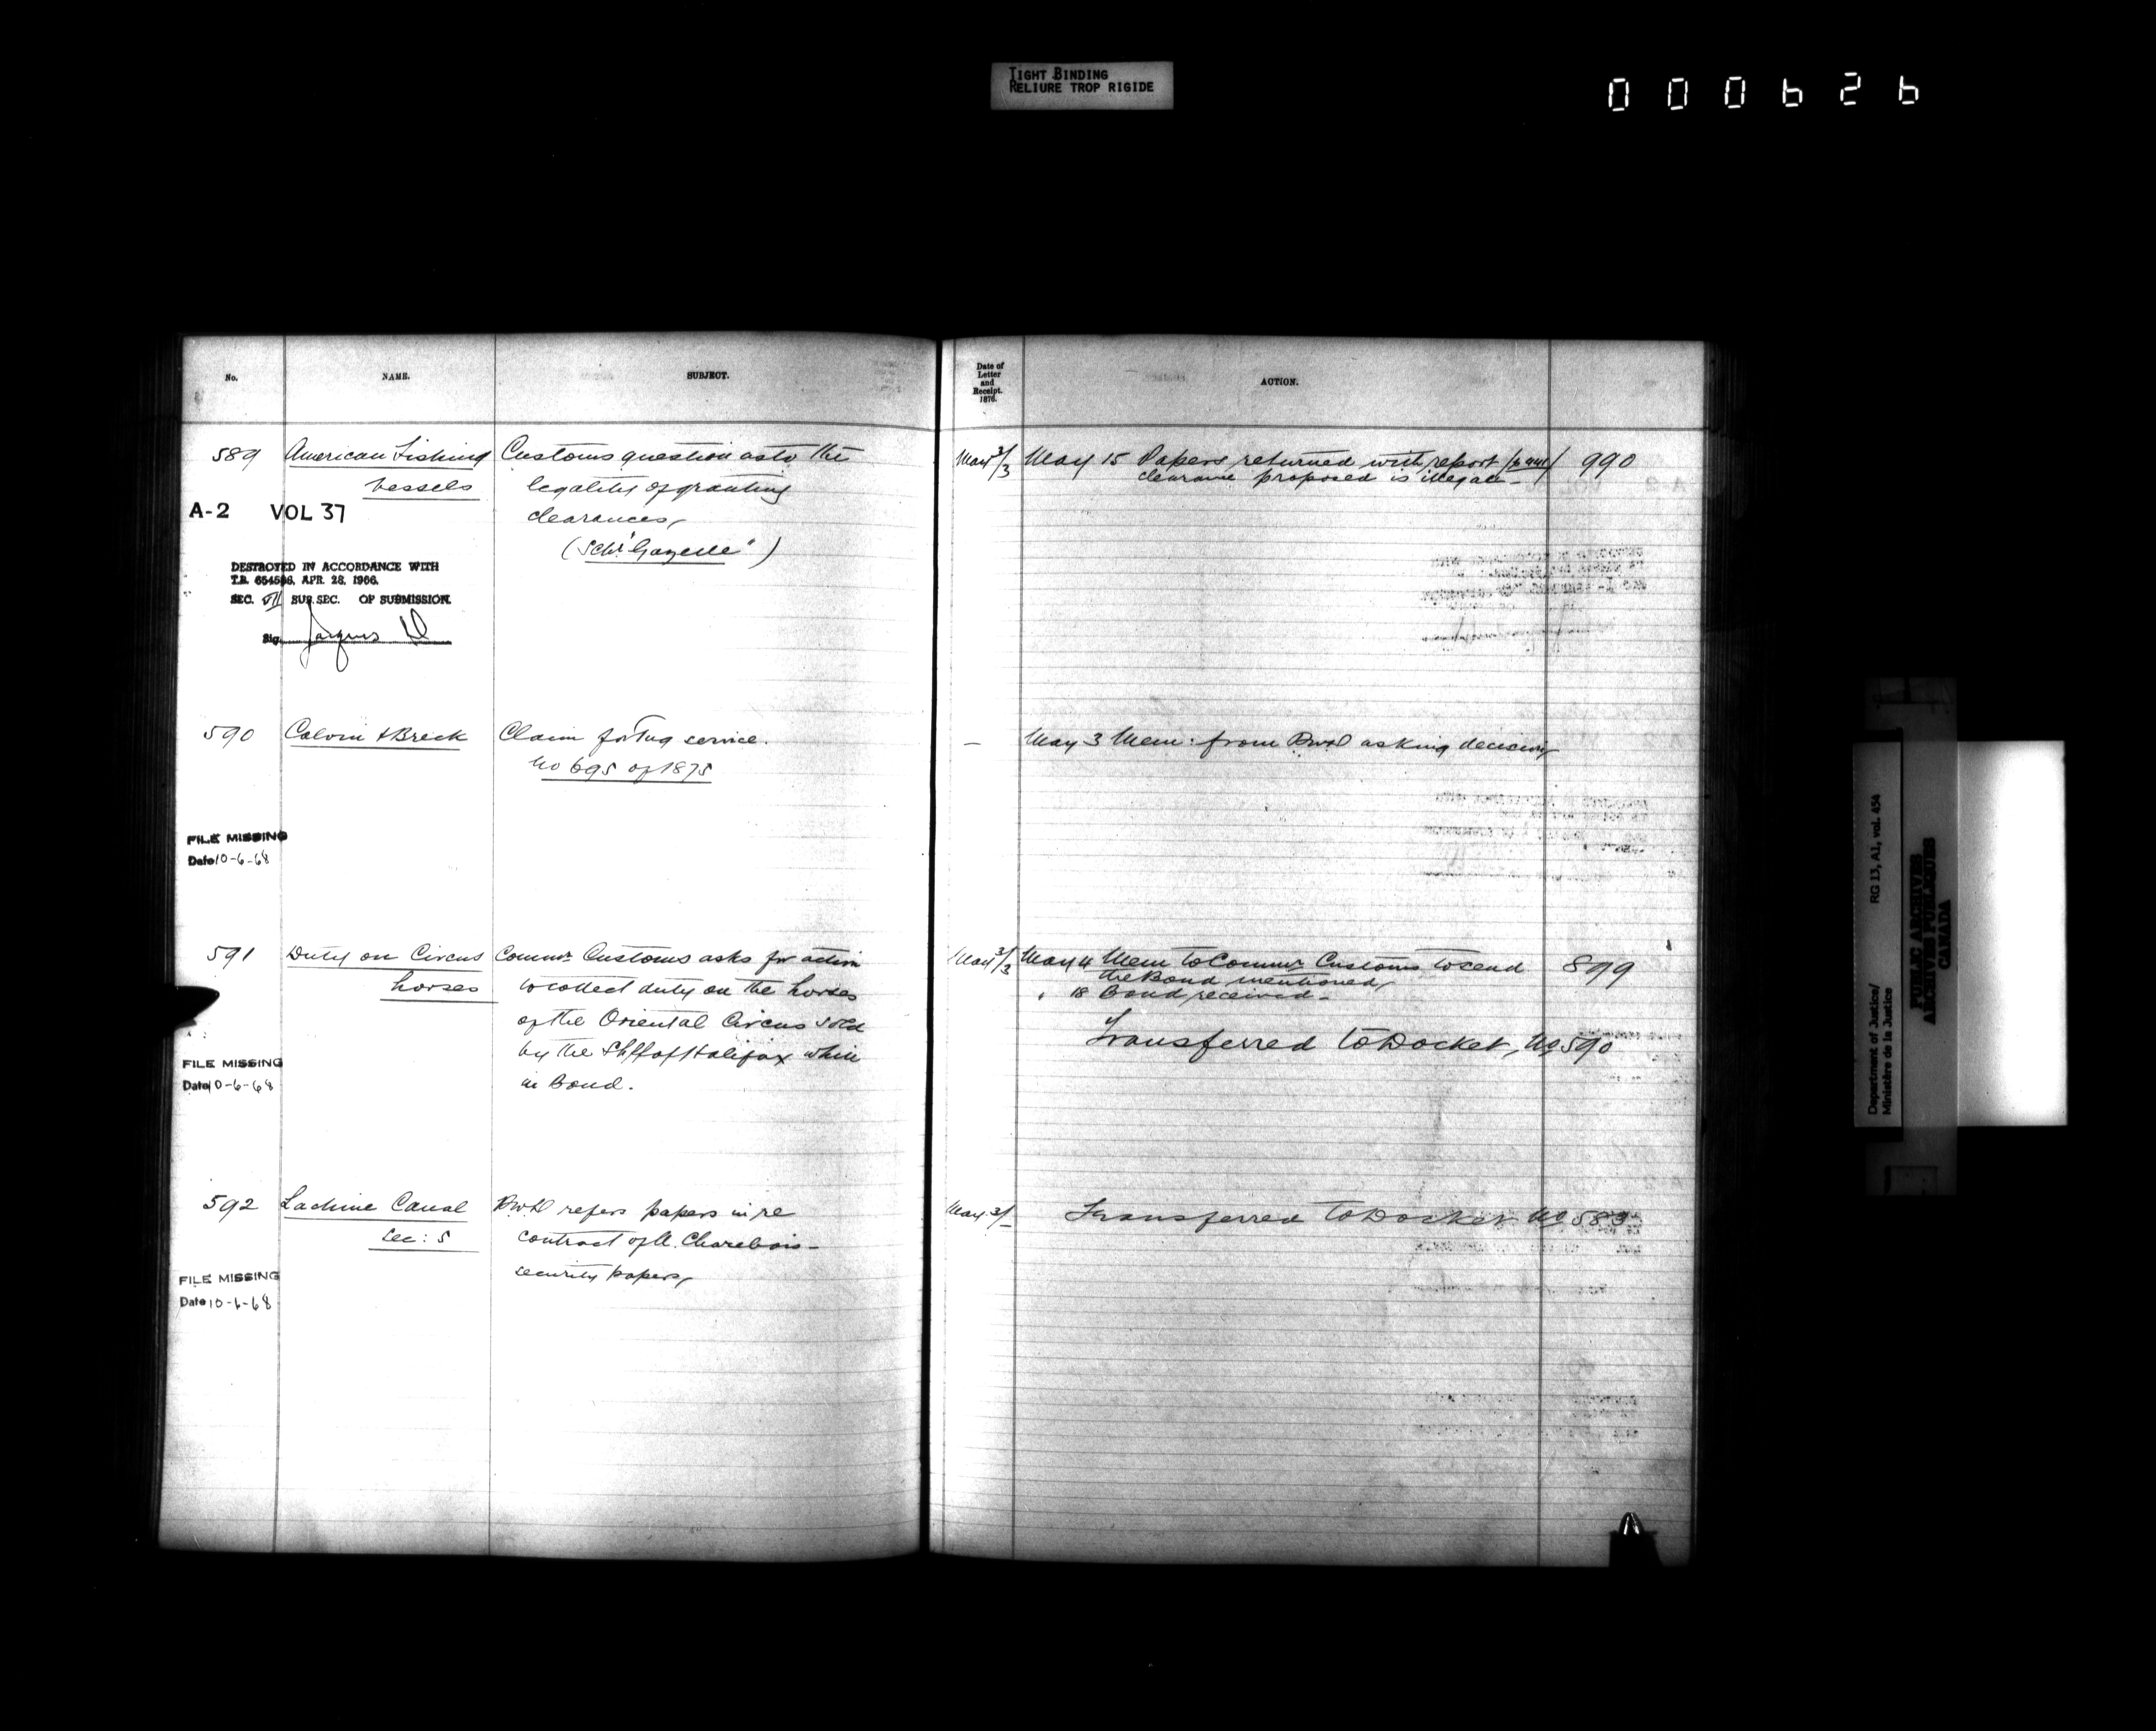 TIGHT BINDING
RELIURE TROP RIGIDE
000626
No.
NAME.
SUBJECT.
Date of
Letter
and
Receipt.
1876.
ACTION.
589 American Fishing Customs question as to the
vessels legality of granting
clearances,
(Schr "Gazelle")
A-2 VOL 37
DESTROYED IN ACCORDANCE WITH
T.B. 654536, APR. 28, 1966.
SEC. VII SUB. SEC. OF SUBMISSION.
Sig. Jacques
May 3/3 May 15 Papers returned with report 990
clearance proposed is illegal -
590 Calvin & Breck Claim for Tug service.
No 695 of 1875
- May 3 Mem: from asking decision
FILE MISSING
Date 10-6-68
591 Duty on Circus Commr Customs asks for action
horses to collect duty on the horses
of the Oriental Circus sold
by the Shff of Halifax while
in Bond.
May 3/3 May 4 Mem to Commr Customs to send 899
the Bond mentioned,
" 18 Bond received -
Transferred to Docket, No 590
FILE MISSING
Date 10-6-68
592 Lachine Canal refers papers in re
Sec: 5 contract of A. Charlebois -
security papers,
May 3/- Transferred to Docket No 583
FILE MISSING
Date 10-6-68
Department of Justice/ RG 13, A1, vol. 454
Ministère de la Justice
PUBLIC ARCHIVES
ARCHIVES PUBLIQUES
CANADA